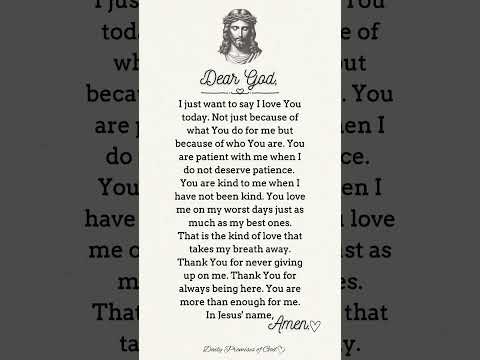 Dear God,
I just want to say I love You
today. Not just because of
what You do for me but
because of who You are. You
are patient with me when I
do not deserve patience.
You are kind to me when I
have not been kind. You love
me on my worst days just as
much as my best ones.
That is the kind of love that
takes my breath away.
Thank You for never giving
up on me. Thank You for
always being here. You are
more than enough for me.
In Jesus' name,
Amen.
Daily Promises of God